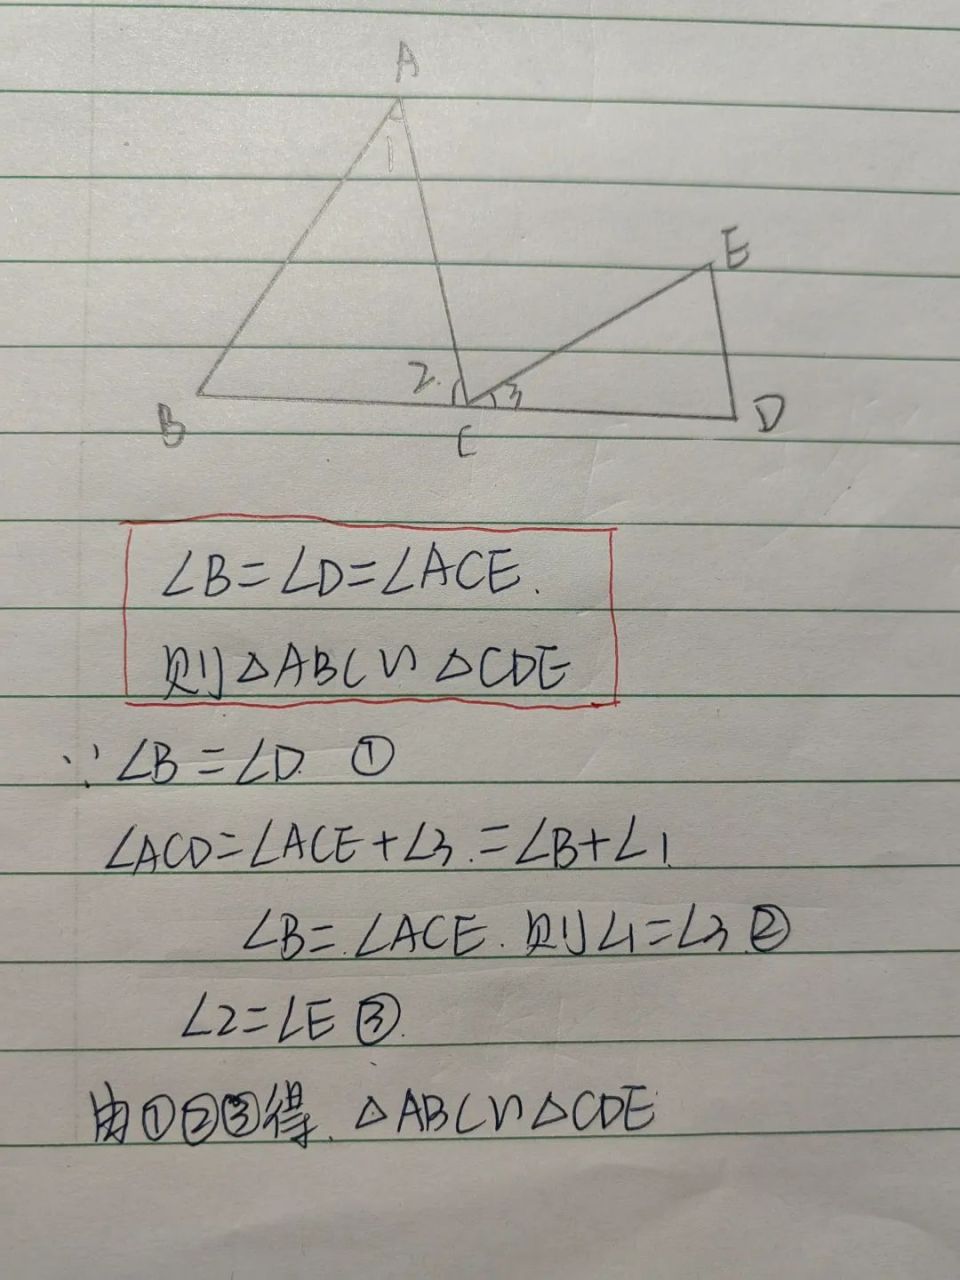 A
1
E
2
3
B
C
D
∠B=∠D=∠ACE.
则△ABC∽△CDE
∵∠B=∠D ①
∠ACD=∠ACE+∠3.=∠B+∠1
∠B=∠ACE.则∠1=∠3②
∠2=∠E③.
由①②③得.△ABC∽△CDE